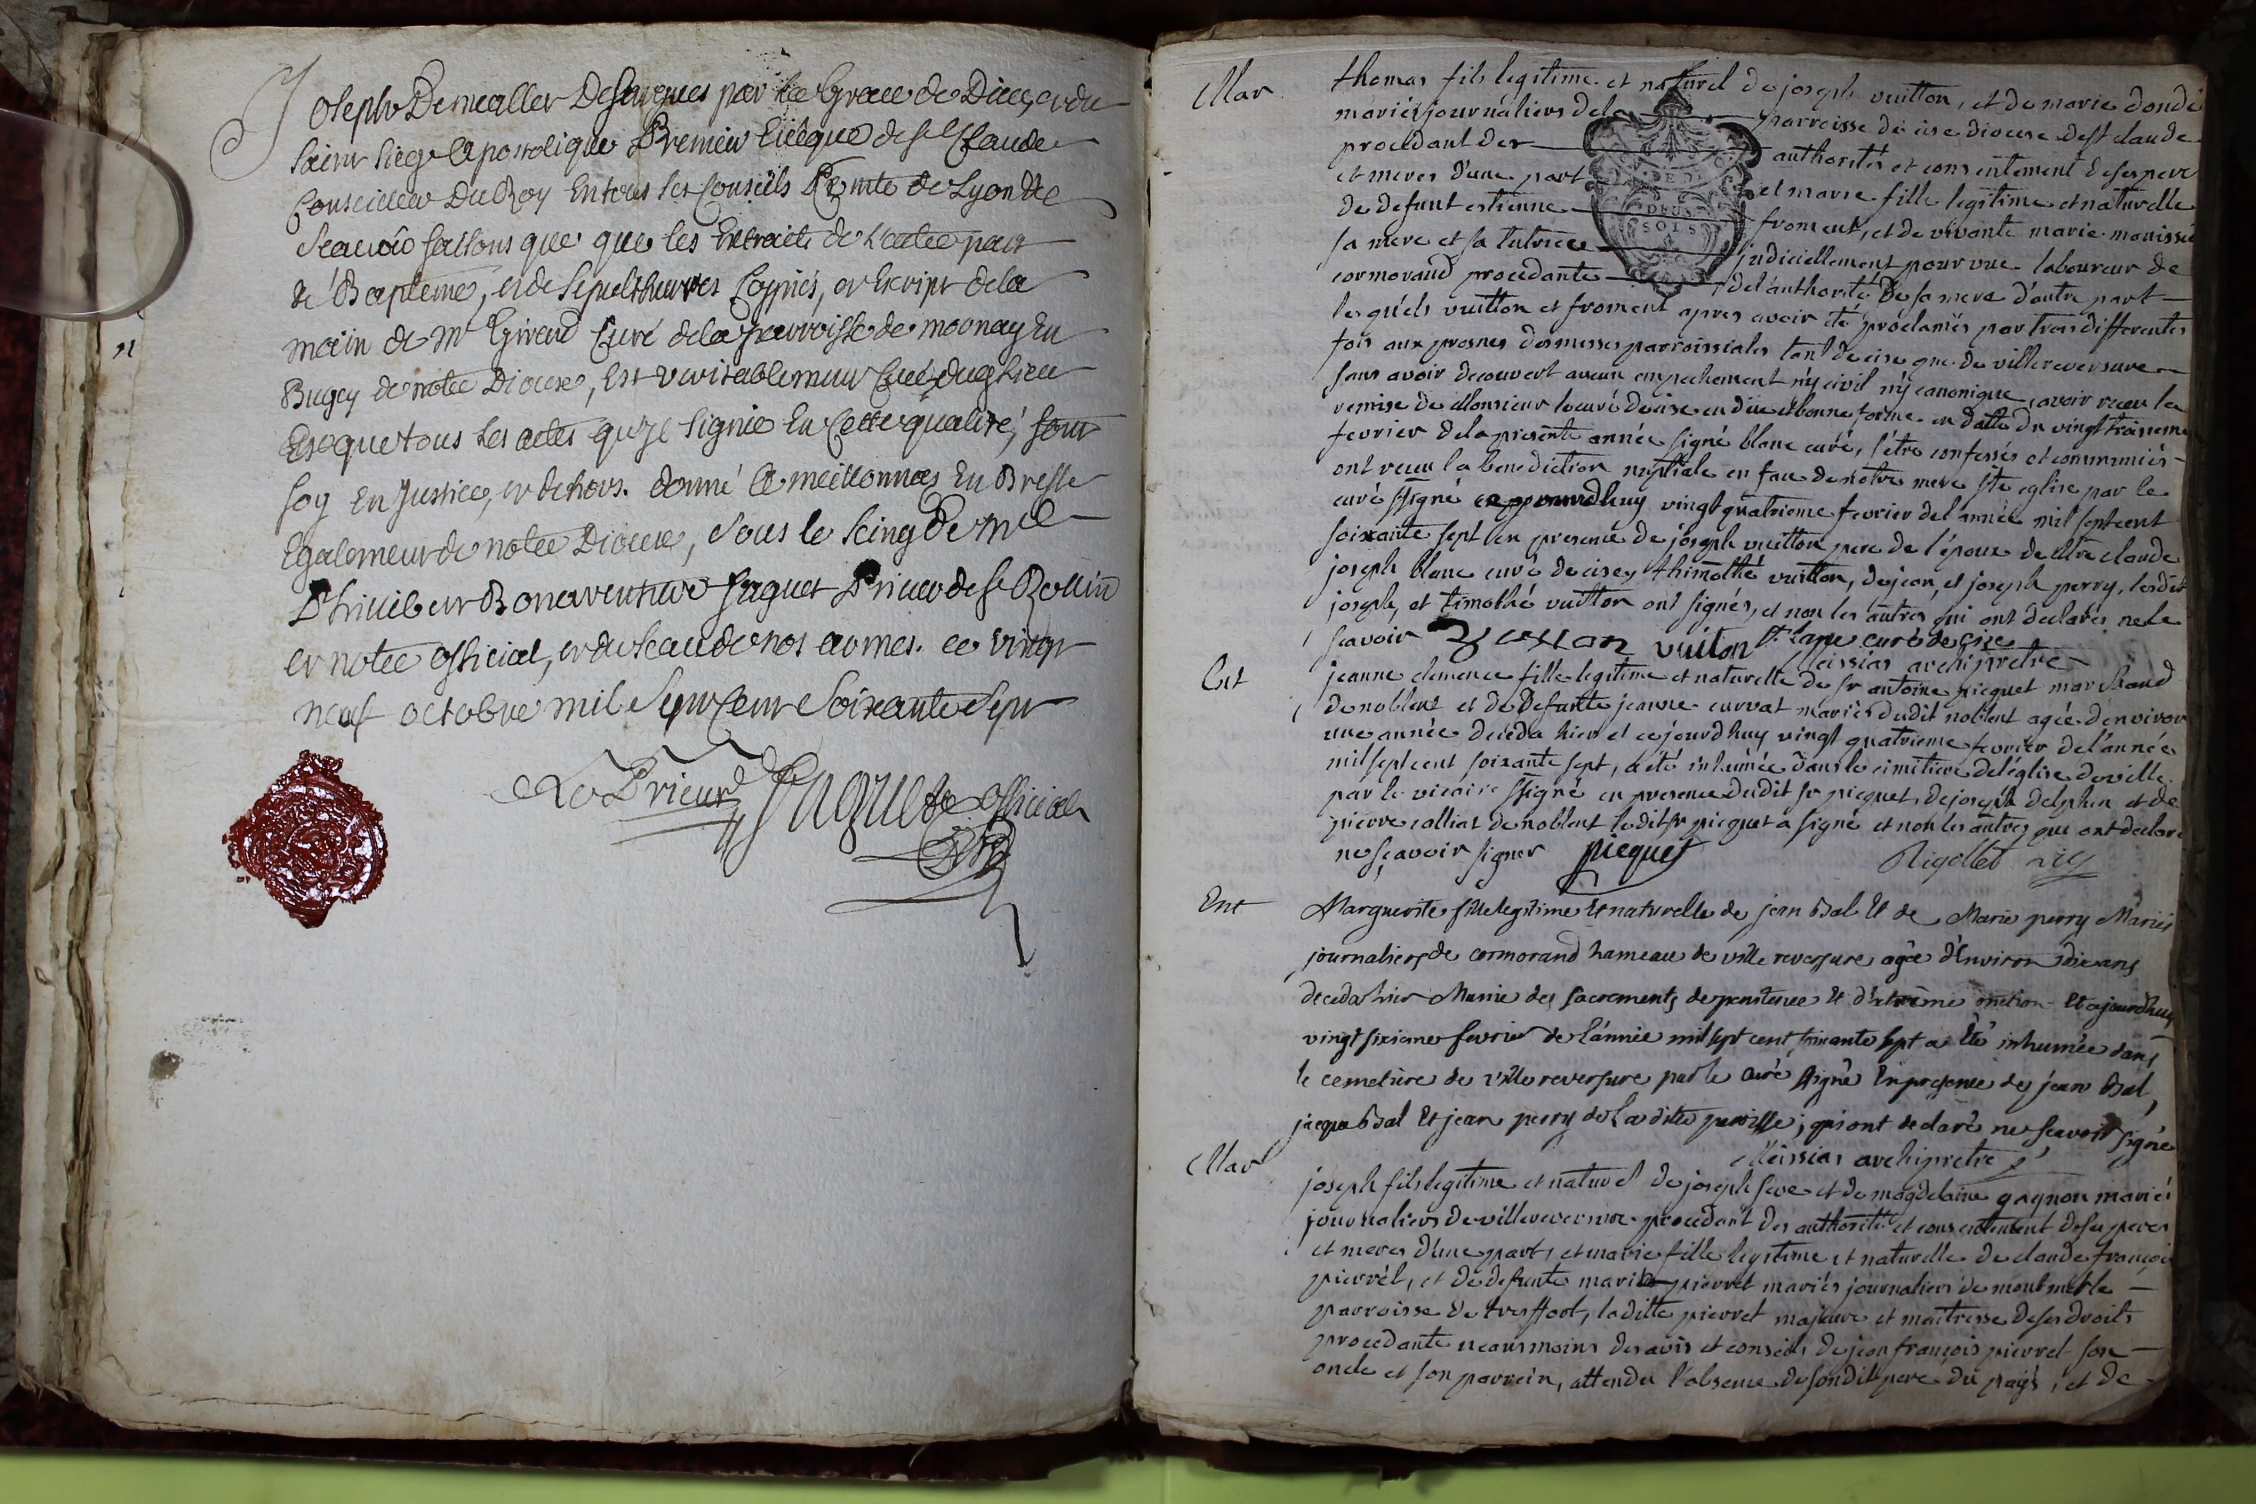 Joseph De meallet De fargues par la Grace de Dieu, et du
saint siege apostolique Premier Evêque de st Claude
Conseiller Du Roy En tous ses Conseils Comte de Lyon &c
Scavoir faisons que que les Extraits de l'autre part
de Bapteme, et de sepulthures Coppiés, et Ecript de la
main de mr Girend Curé de la parroisse de mornay En
Bugey de notre Diocese, Est veritablement Curé dud lieu
Et que tous les actes qu'il signie En Cette qualité, font
foy En Justice, et dehors. donné a meillonnas En Bresse
Egalement de notre Diocese, sous le seing De mre
Philibert Bonaventure faguet Prieur de st
et notre official, et du sceau de nos armes. ce vingt
neuf octobre mil sept Cent Soixante Sept
Le Prieur Faguet official
Mar
thomas fils legitime et naturel de joseph vuitton, et de marie donde
mariés journaliers de parroisse de cise diocese de st claude
procedant des authorités et consentement de ses pere
et meres d'une part et marie fille legitime et naturelle
de defunt estienne froment, et de vivante marie
sa mere et sa tutrice judiciellement pourvue laboureur de
cormorand procedante de l'authorité de sa mere d'autre part
DEUX
SOLS
lesquels vuitton et froment apres avoir eté proclamés par trois differentes
fois aux prosnes des messes parroissiales tant de cise que de villereversure
sans avoir decouvert aucun empechement ny civil ny canonique, avoir receu la
remise de Monsieur le curé de cise en due et bonne forme en datte du vingt troisieme
fevrier de la presente année signé blanc curé, s'être confessés et communiés
ont receu la benediction nuptiale en face de notre mere ste eglise par le
curé ssigné aujourdhuy vingt quatrieme fevrier de l'année mil sept cent
soixante sept en presence de joseph vuitton pere de l'époux de Mre claude
joseph blanc curé de cise, thimothé vuitton, de jean, et joseph perry, lesdits
joseph, et timothé vuitton ont signés, et non les autres qui ont declarés ne le
scavoir vuiton blanc curé de cise
Meissiat archiprêtre
Ent
jeanne clemence fille legitime et naturelle de sr antoine picquet marchand
de noblens et de Defunte jeanne curvat mariés dudit noblent agée d'environ
une année deceda hier et cejourdhuy vingt quatrieme fevrier de l'année
mil sept cent soixante sept, a eté inhumée dans le cimitiere de l'église de ville.
par le vicaire ssigné en presence dudit sr picquet, de joseph delphin et de
pierre calliat de noblent ledit sr picquet a signé et non les autres qui ont declaré
ne sçavoir signer picquet Rigollet vic
Ent
Marguerite fille legitime Et naturelle de jean Bal Et de Marie perry Mariés
journaliers de cormorand hameau de ville reversure agée d'Environ dix ans
deceda hier Munie des sacrements de penitence Et d'extreme onction Et cejourdhuy
vingt sixieme fevrier de l'année mil sept cent soixante sept a Eté inhumée dans
le cemetiere de ville reversure par le curé ssigné En presence de jean Bal,
jacque Bal Et jean perry de La dite parroisse, qui ont declaré ne scavoir signé
Meissiat archiprêtre
Mar
joseph fils legitime et naturel de joseph seve et de magdelaine gagnon mariés
journaliers de villereversure procedant des authorité et consentement de ses peres
et meres d'une part, et marie fille legitime et naturelle de claude françois
pierrel, et de defunte marie pierret mariés journaliers de montmerle
parroisse de treffort, laditte pierret majeure et maitresse de ses droits
procedante neansmoins des avis et conseils de jean françois pierret son
oncle et son parrein, attendu l'absence de sondit pere du pays, et de